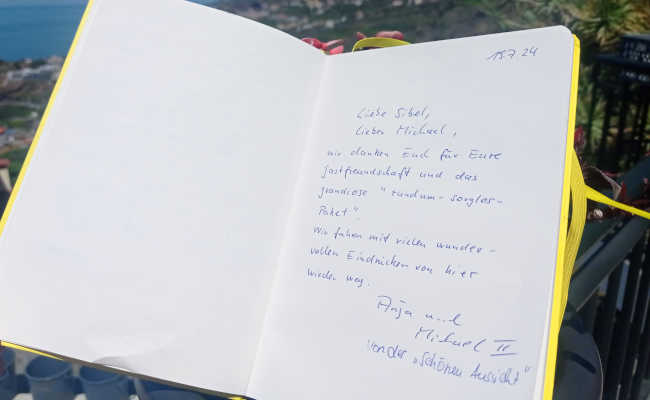 15.7.24
Liebe Sibel,
Lieber Michael,
wir danken Euch für Eure
Gastfreundschaft und das
grandiose "rundum-sorglos-
Paket".
Wir fahren mit vielen wunder-
vollen Eindrücken von hier
wieder weg.
Anja und
Michael II
von der „Schönen Aussicht"